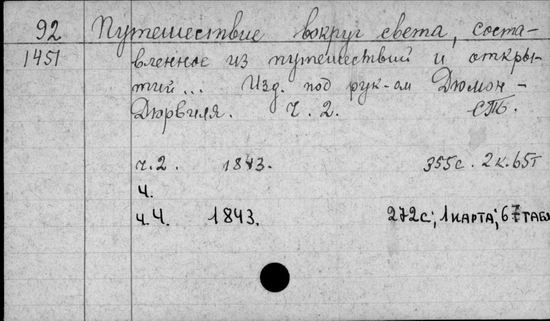 92 Путешествие вокруг света, соста-
1451 вленное из путешествий и откры-
тий... Изд. под рук-ом Дюмон-
Дюрвиля. Ч. 2. СПБ.
ч. 2. 1843. 355с. 2к. 65т
ч.
ч. 4. 1843. 272с; 1 карта; 67 табл